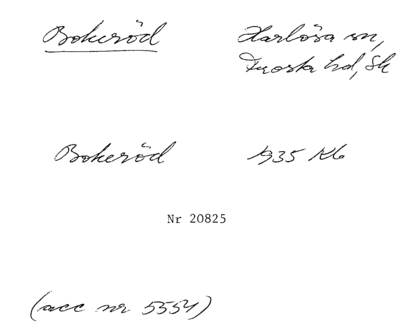 Bokeröd Harlösa sn,
Frosta hd, Sk
Bokeröd 1935 Kb
Nr 20825
(acc nr 5554)